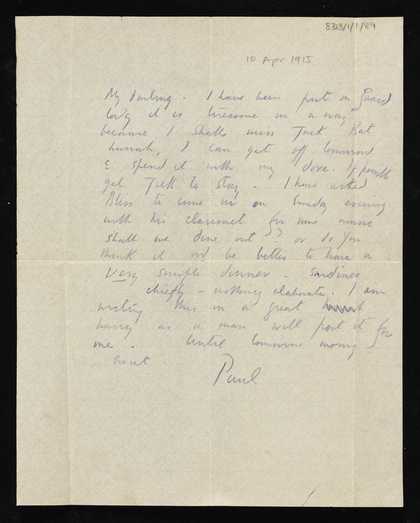 8313/1/1/89
10 Apr 1915
My darling. I have been put on Guard
today it is tiresome in a way
because I shall miss But
hurrah, I can get off tomorrow
& spend it with my dove. If possible
get to stay. I have asked
Bliss to come in on Sunday evening
with his clarionet for some music
shall we dine out?? or do you
think it wd be better to have a
very simple dinner - sardines
chiefly - nothing elaborate. I am
writing this in a great
hurry as a man will post it for
me. Until tomorrow morng
Paul